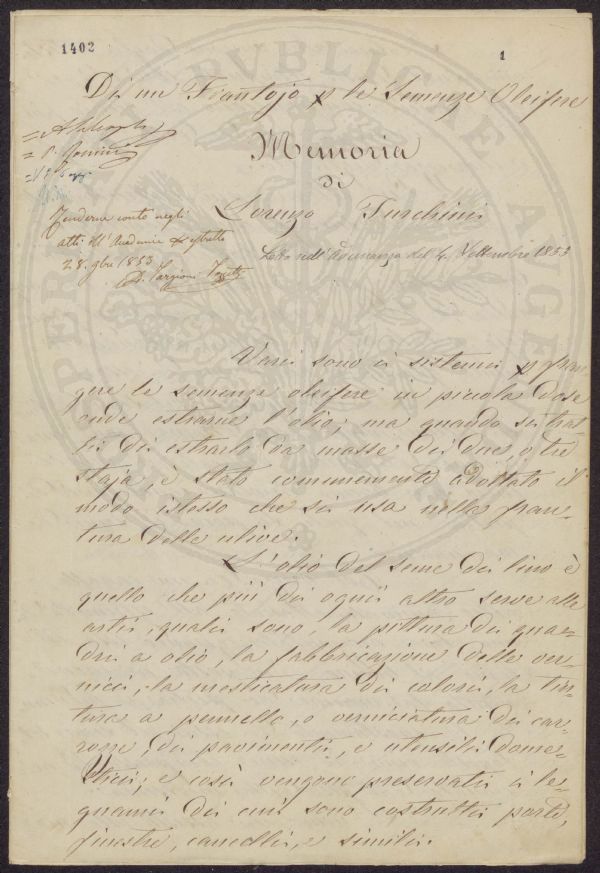 1402
1
Di un Frantojo p le Semenze Oleifere
Memoria
di
Lorenzo Turchini
Letto nell'Adunanza del 4. Settembre 1853
Renderne conto negli
atti dell'Accademia
28. 9bre 1853
Varii sono i sistemi p fran
gere le semenze oleifere in piccola dose
onde estrarne l'olio; ma quando si trat-
ti di estrarlo da masse di due, o tre
staja, è stato comunemente adottato il
modo istesso che si usa nella fran-
tura delle ulive.
L'olio del seme di lino è
quello che più di ogni altro serve alle
arti, quali sono, la pittura di qua-
dri a olio, la fabbricazione delle ver-
nici, la mesticatura di colori, la tin-
tura a pennello, o verniciatura di car-
rozze, di pavimenti, e utensili dome-
stici; e così vengono preservati i le-
gnami di cui sono costrutti porte,
finestre, cancelli, e simili.
PVBLICAE